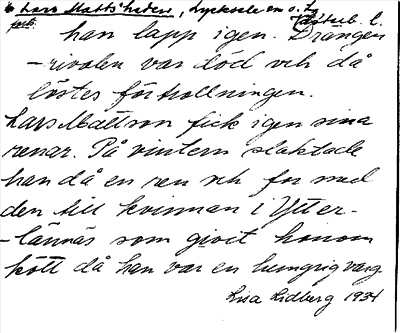 Lars Mattsheden, Lycksele
han lapp igen. Drängen
-rivalen var död och då
löstes förtrollningen.
Lars Mattson fick igen sina
renar. På vintern slaktade
han då en ren och for med
den till kvinnan i Ytter-
-lännäs som givit honom
kött då han var en hungrig varg
Lisa Lidberg 1934